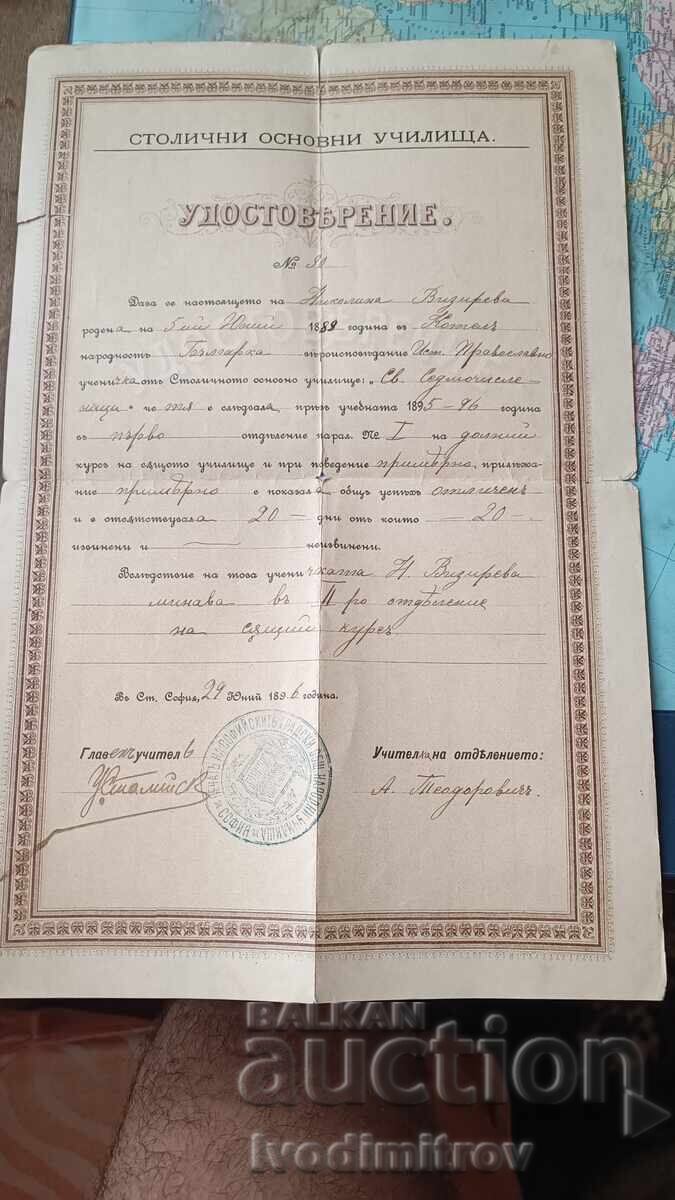 СТОЛИЧНИ ОСНОВНИ УЧИЛИЩА.
УДОСТОВѢРЕНИЕ.
№ 80
Дава се настоящето на Николина Визирева
родена на 5ий Юний 1889 година въ Котелъ
народность Българка вѣроисповѣдание Ист. Православно
ученичка отъ Столичното основно училище: „Св. Седмочисле-
ници" че тя е слѣдвала прѣзъ учебната 1895-96 година
въ първо отдѣление парал. № I на долний
курсъ на сѫщото училище и при поведение примѣрно, прилѣжа-
ние примѣрно е показала общъ успѣхъ отличенъ
и е отсѫтствувала 20 - дни отъ които - 20 -
извинени и — неизвинени.
Вслѣдствие на това ученичката Н. Визирева
минава въ II ро отдѣление
на сѫщий курсъ.
Въ Ст. София, 29 Юний 1896 година.
Главенъ учитель
Учителка на отдѣлението:
А. Теодоровичъ.
BALKAN
auction
Ivodimitrov